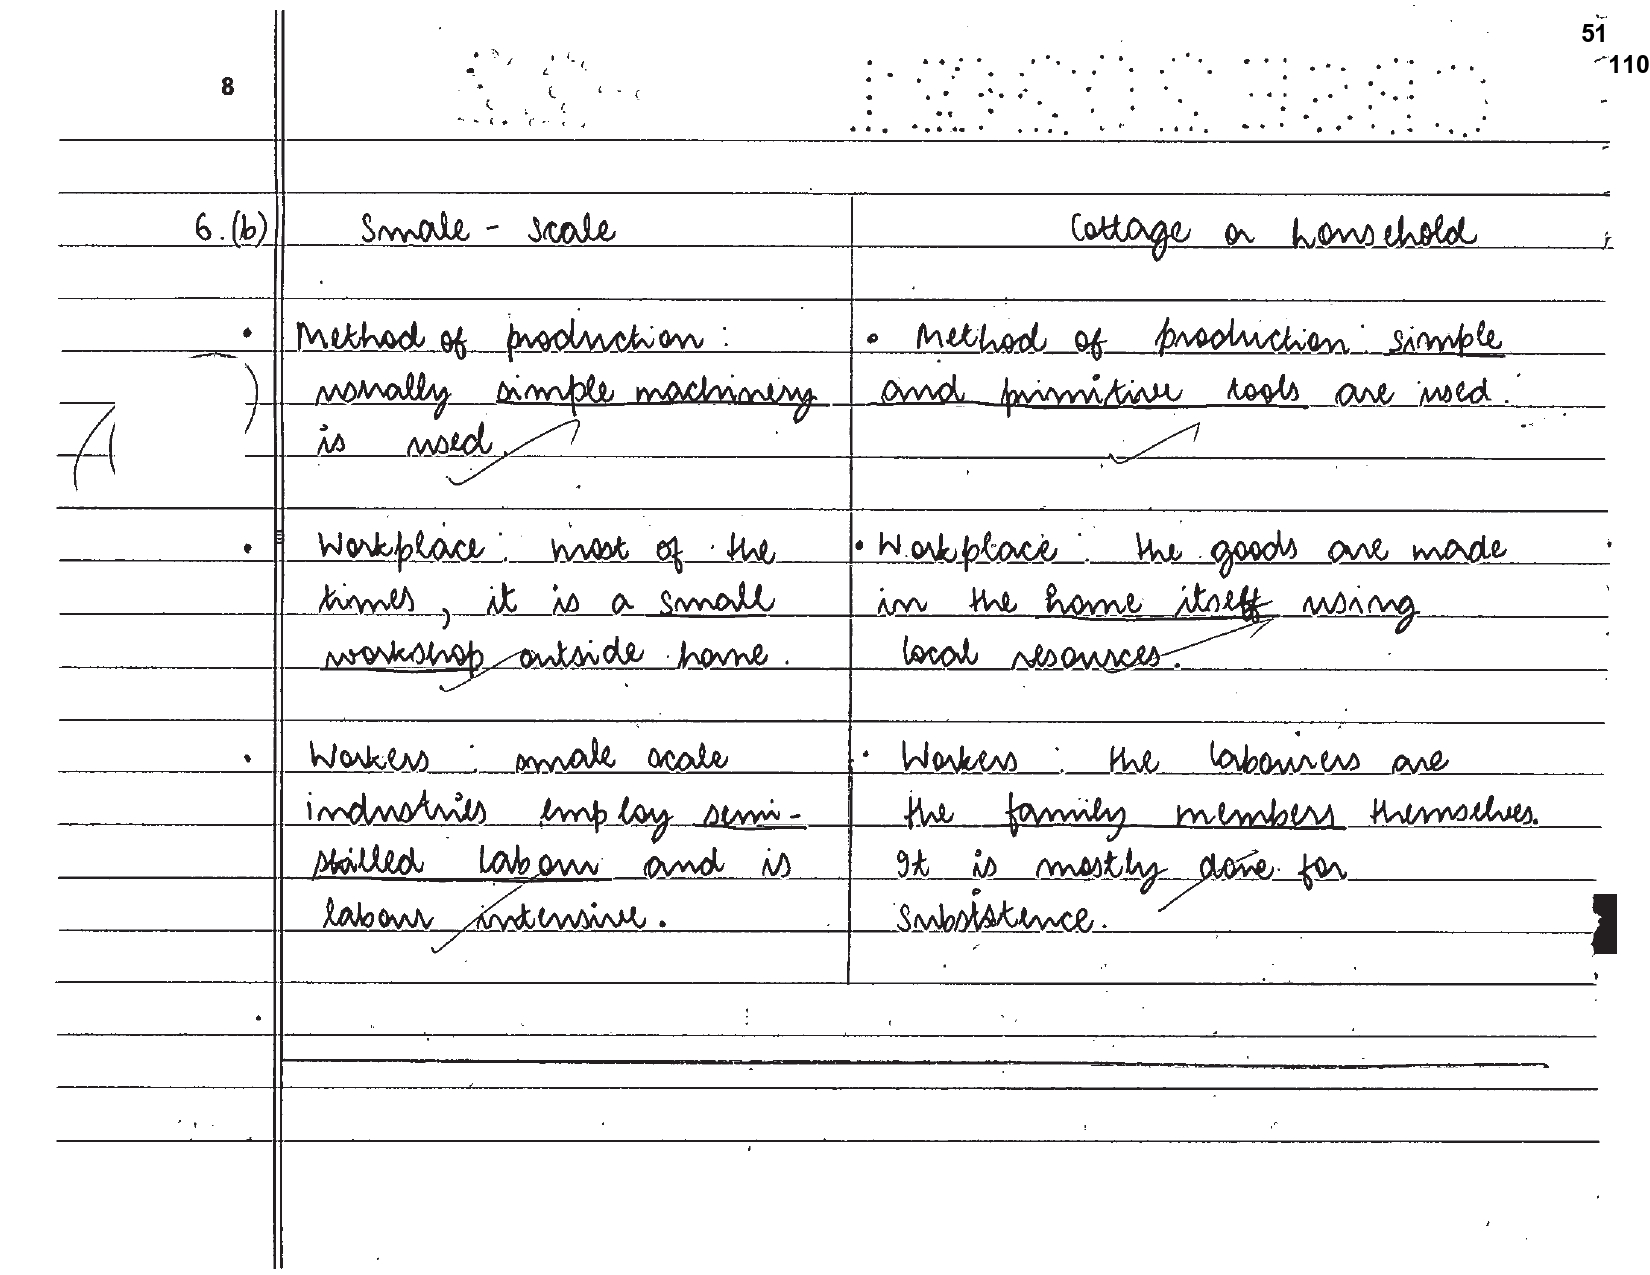 51
110
8
6.(b) Smale - scale
Cottage or household
• Method of production :
usually simple machinery
is used.
• Method of production : simple
and primitive tools are used.
• Workplace : most of the
times, it is a small
workshop outside home.
• Workplace : the goods are made
in the home itself using
local resources.
• Workers : smale scale
industries employ semi-
skilled labour and is
labour intensive.
• Workers : the labourers are
the family members themselves.
It is mostly done for
subsistence.